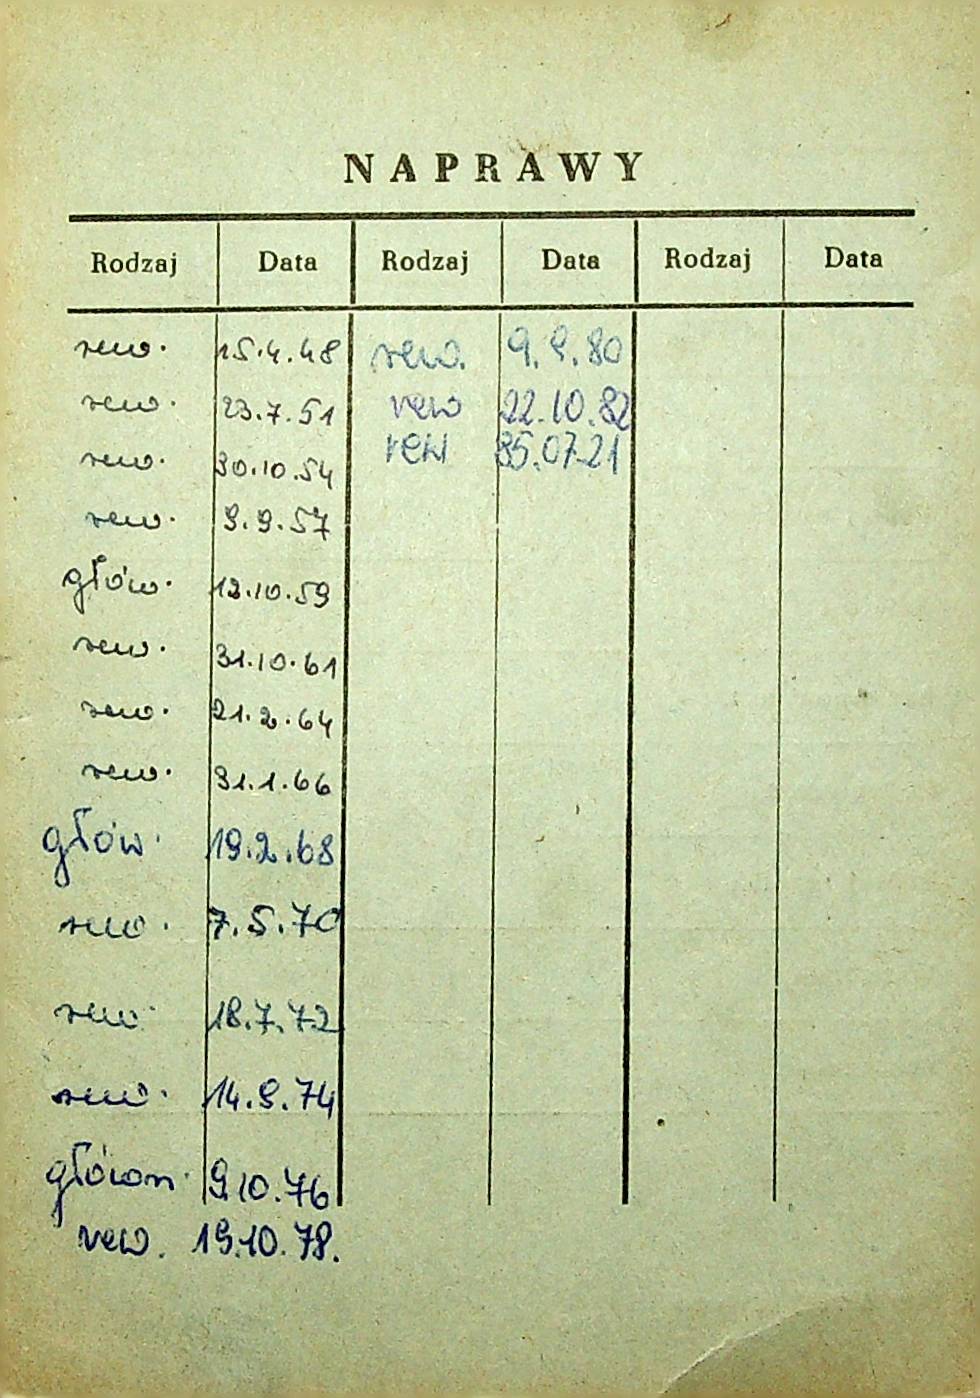 NAPRAWY
Rodzaj Data Rodzaj Data Rodzaj Data
rew. 15.4.48 rew. 9.9.80
rew. 23.7.51 rew 22.10.82
rew. 30.10.54 rew 85.07.21
rew. 9.9.57
głów. 12.10.59
rew. 31.10.61
rew. 21.2.64
rew. 31.1.66
głów. 19.2.68
rew. 7.5.70
rew. 18.7.72
rew. 14.9.74
główn. 9.10.76
rew. 19.10.78.